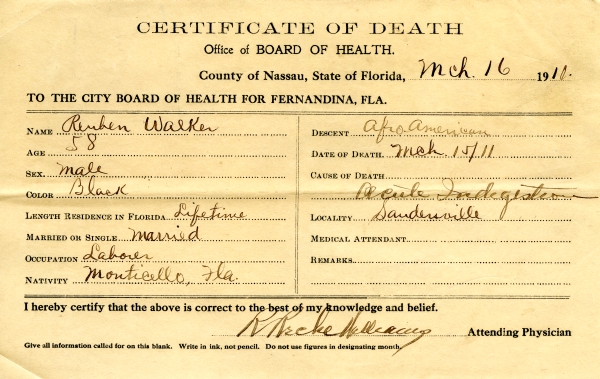 CERTIFICATE OF DEATH
Office of BOARD OF HEALTH.
County of Nassau, State of Florida, Mch. 16 1911.
TO THE CITY BOARD OF HEALTH FOR FERNANDINA, FLA.
NAME Reuben Walker
AGE 58
SEX. male
COLOR Black
LENGTH RESIDENCE IN FLORIDA Lifetime
MARRIED OR SINGLE Married
OCCUPATION Laborer
NATIVITY Monticello, Fla.
DESCENT Afro American
DATE OF DEATH. Mch 15/11
CAUSE OF DEATH
Acute Indigestion
LOCALITY
MEDICAL ATTENDANT
REMARKS
I hereby certify that the above is correct to the best of my knowledge and belief.
Williams Attending Physician
Give all information called for on this blank. Write in ink, not pencil. Do not use figures in designating month.